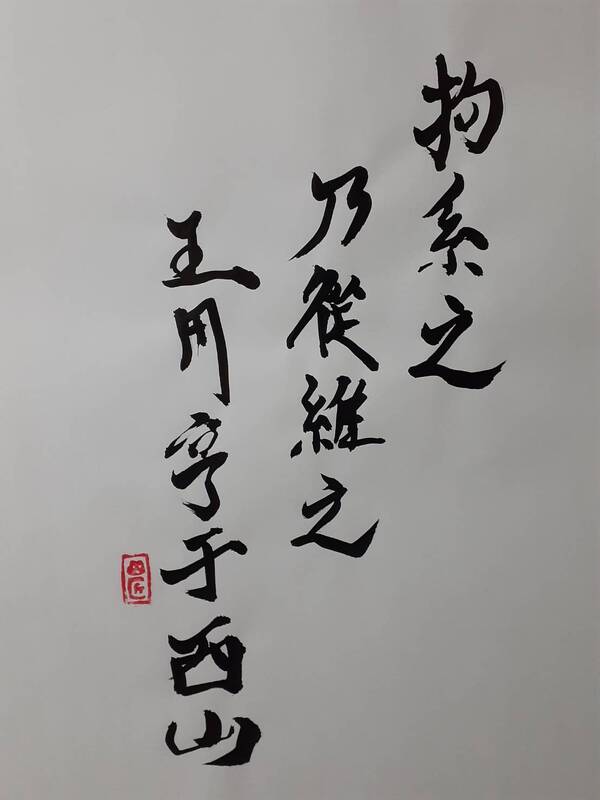 拘系之
乃從維之
王用亨于西山